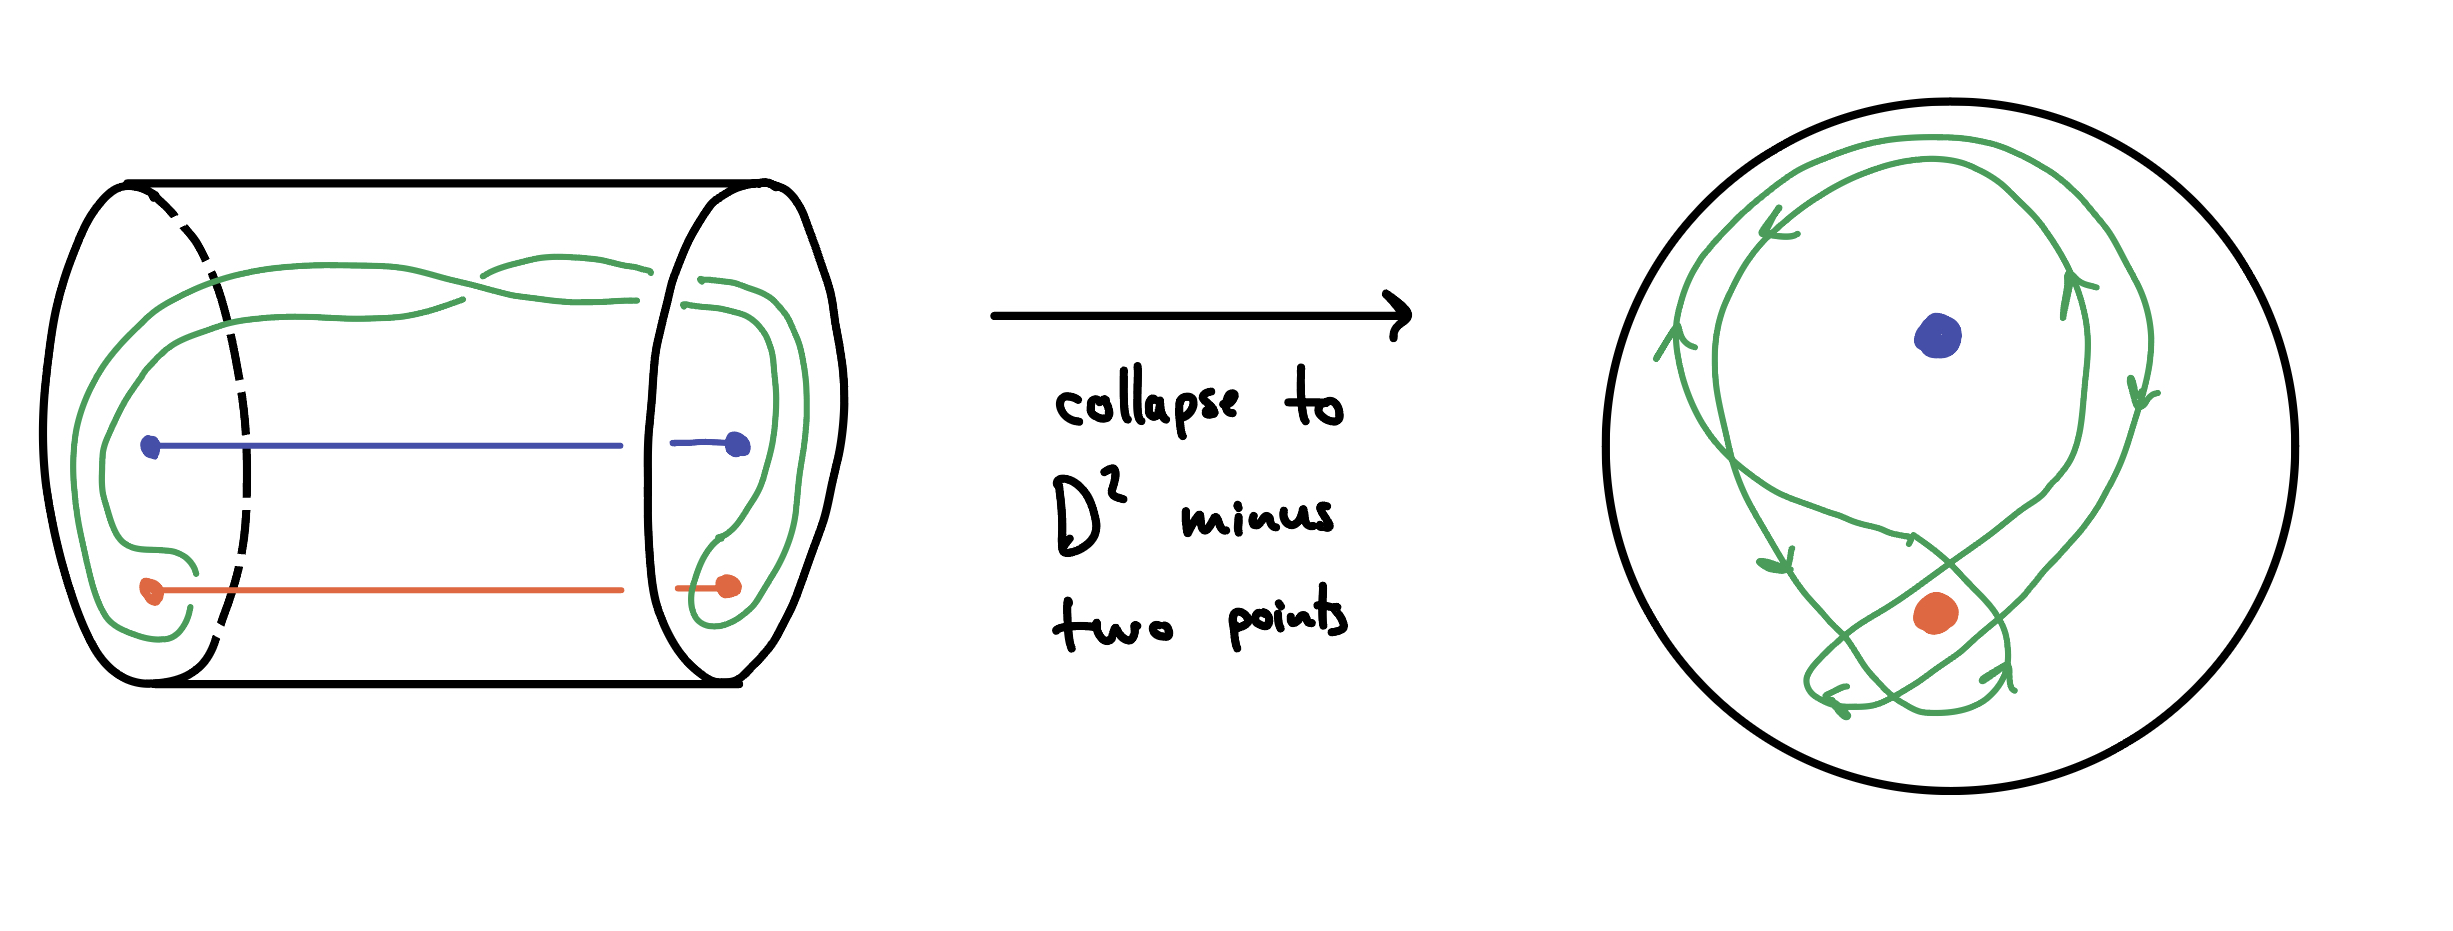 collapse to
D² minus
two points